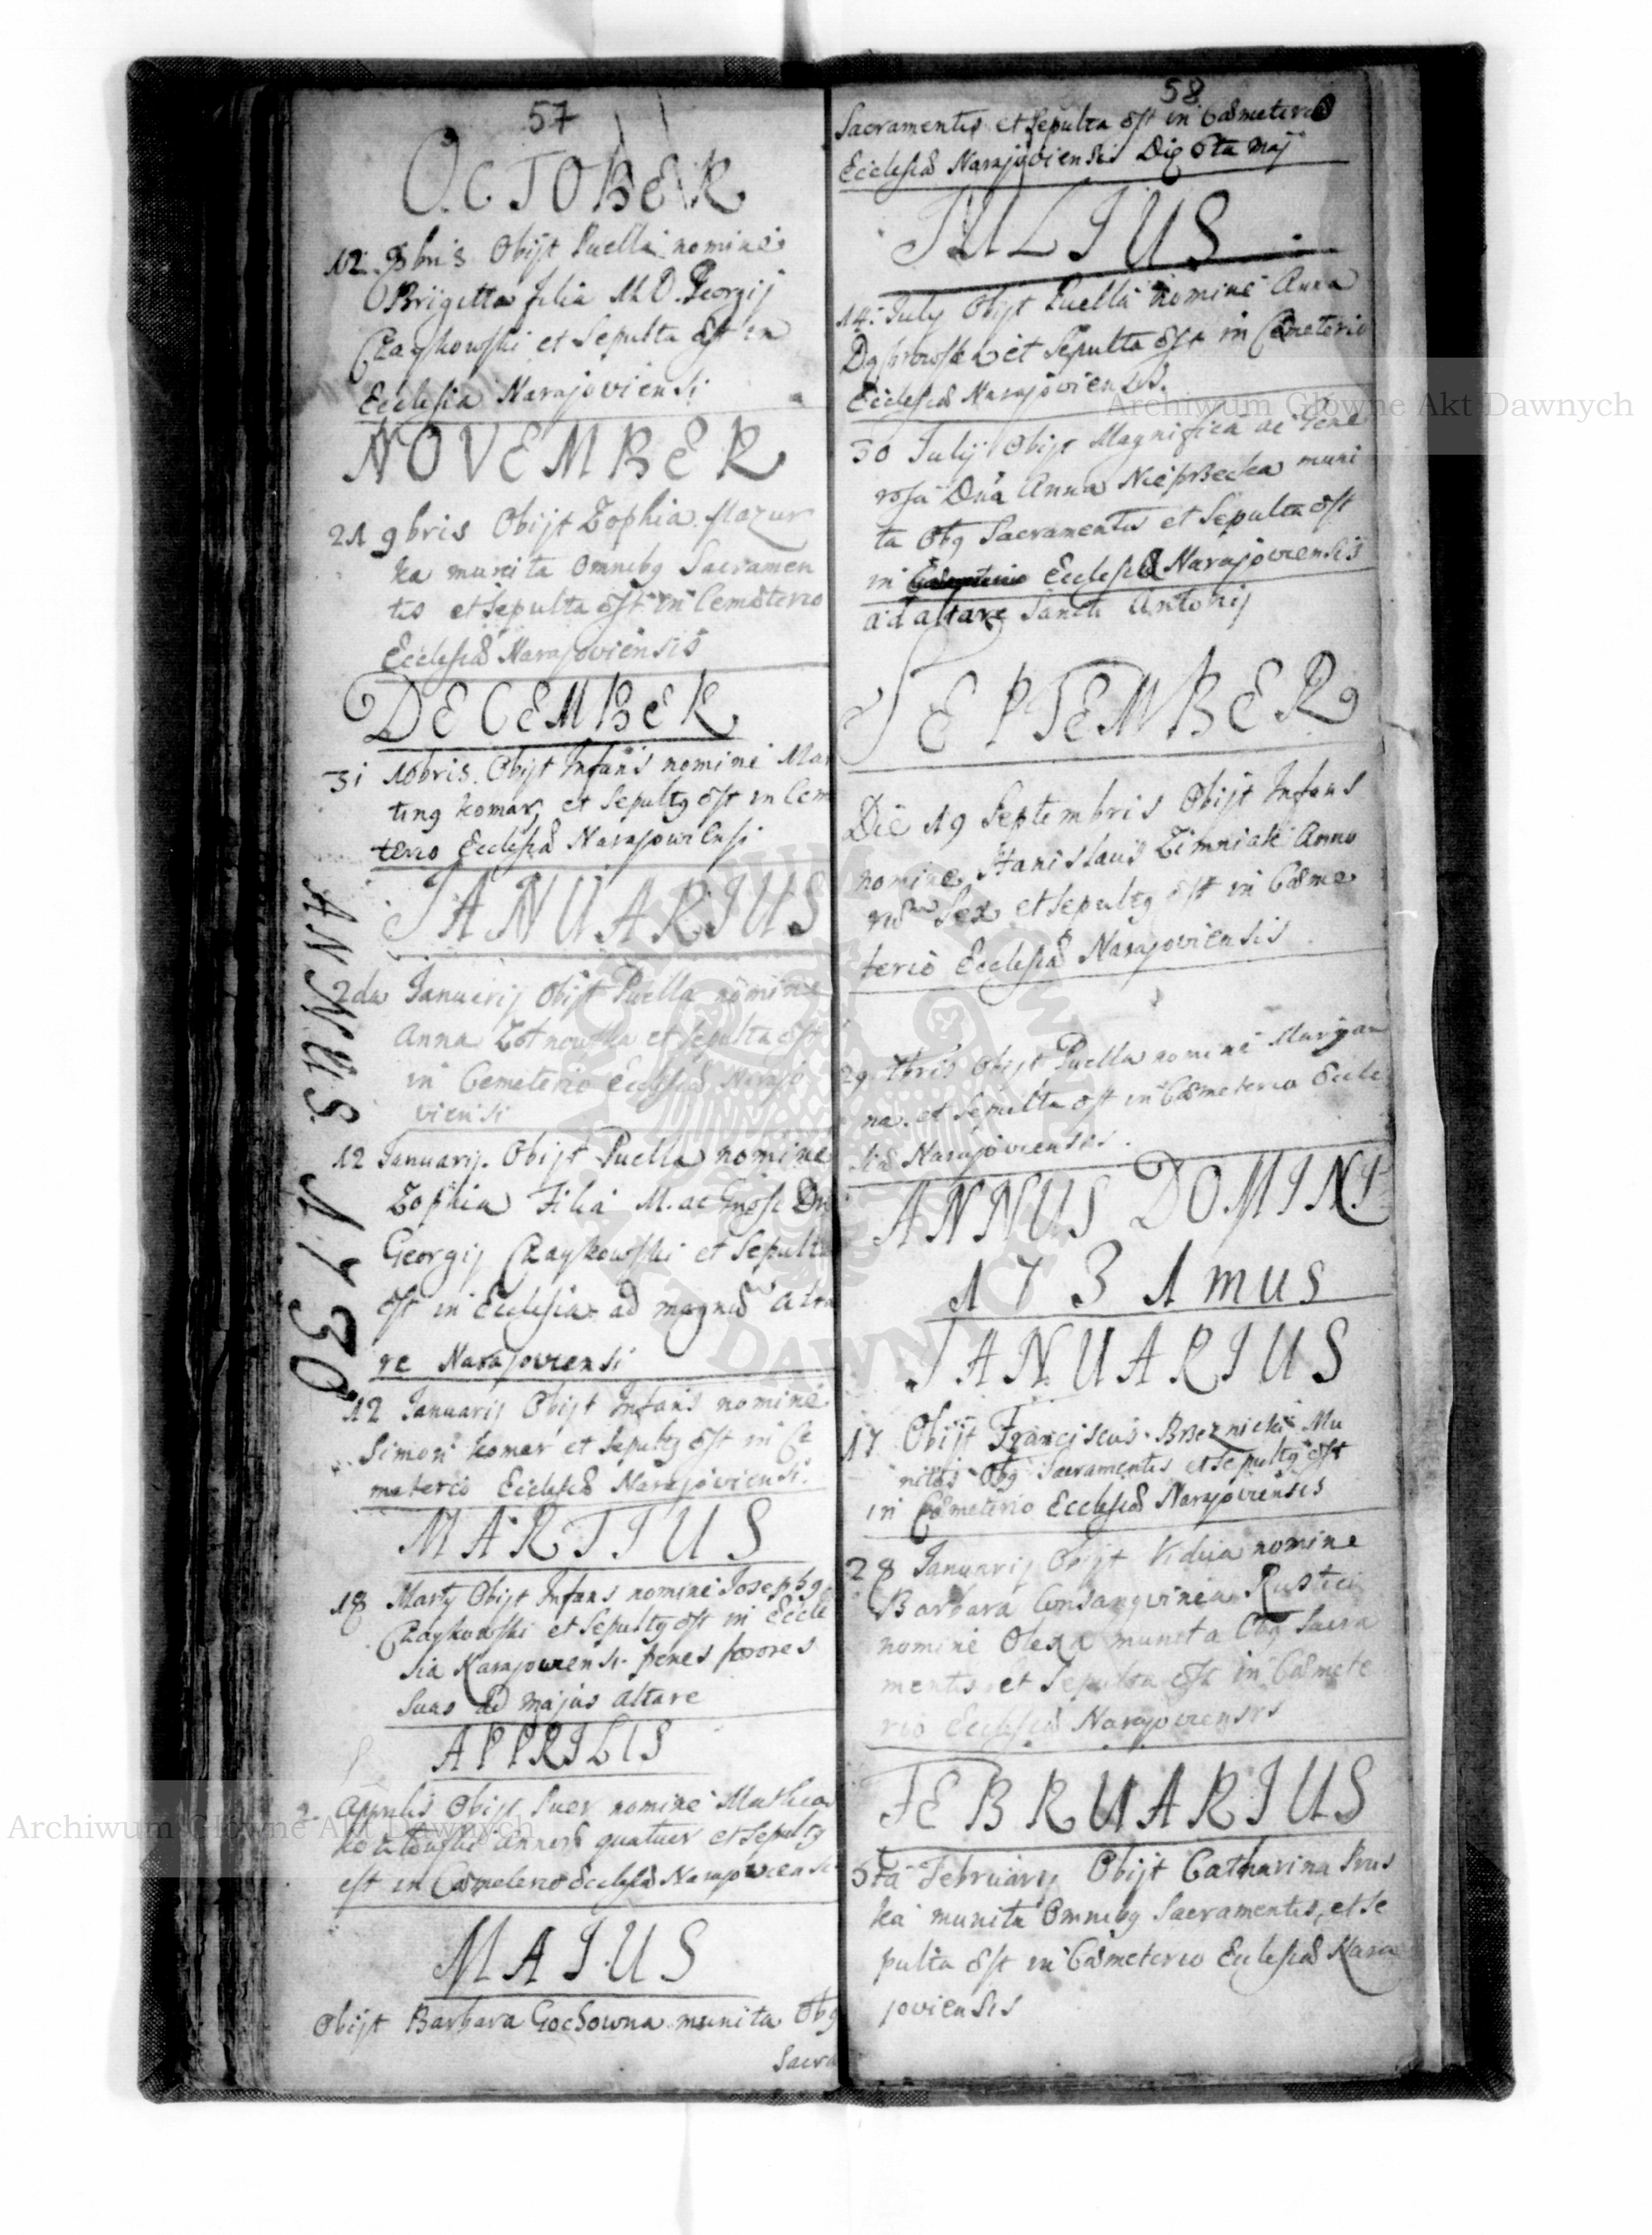 57
OCTOBER
12. 8bris Obijt Puella nomine
Brijgitta filia M. D. Georgij
Czaykowski et Sepulta Est in
Ecclesia Narajoviensi
NOVEMBER
21 9bris Obijt Zophia Mazur
ka munita Omnibg Sacramen
tis et Sepulta Est in Cemeterio
Ecclesiae Narajoviensis
DECEMBER
31 10bris. Obijt Infans nomine Mar
ting Komar, et Sepultg Est in Cem
terio Ecclesiae Narajoviensi
ANNUS 1730
JANUARIUS
2da Januarij Obijt Puella nomine
Anna Zotnowska et Sepulta Est
in Cemeterio Ecclesiae Narajo
viensi
12 Januarij. Obijt Puella nomine
Zophia Filia M. ac Gnosi Dni
Georgij Czaykowski et Sepulta
Est in Ecclesia ad magnum Alta
re Narajoviensi
12 Januarij Obijt Infans nomine
Simon Komar et Sepultg Est in Ce
meterio Ecclesiae Narajoviensi.
MARTIUS
18 Martij Obijt Infans nomine Josephg
Czaykowski et Sepultg Est in Eccle
sia Narajoviensi penes sorores
suas ad majus Altare
APPRILIS
2. Apprilis Obijt Puer nomine Mathias
annorum quatuor et Sepultg
est in Caemeterio Ecclesiae Narajoviensi
MAIUS
Obijt Barbara Gochowna munita Obg
Sacra
58
Sacramentis et Sepulta Est in Caemeterio
Ecclesiae Narajoviensis Die 6ta Maj
JULIUS
14. July Obijt Puella nomine Anna
Dąbrowska et Sepulta Est in Cemeterio
Ecclesiae Narajoviensis.
30 Julij Obijt Magnifica ac Gene
rosa Dna Anna NiepRzecka muni
ta Obg Sacramentis et Sepulta Est
in Ecclesiae Narajoviensis
ad altare Sancti Antonij
SEPTEMBER
Die 19 Septembris Obijt Infans
nomine Stanislaus Zimniak Anno
rum Sex et Sepultg Est in Caeme
terio Ecclesiae Narajoviensis
29. 7bris Obijt Puella nomine Maryan
na. et Sepulta Est in Caemeterio Eccle
siae Narajoviensis.
ANNUS DOMINI
1731mus
JANUARIUS
17 Obijt Franciscus Brzeznicki Mu
nitus Obg Sacramentis et Sepultg Est
in Caemeterio Ecclesiae Narajoviensis
28 Januarij Obijt Vidua nomine
Barbara Consangvinea Rustici
nomine Olexa munita Obg Sacra
mentis et Sepulta Est in Caemete
rio Ecclesiae Narajoviensis
FEBRUARIUS
5ta Februarij Obijt Catharina Prus
ka munita Omnibg Sacramentis, et Se
pulta Est in Caemeterio Ecclesiae Nara
joviensis
Archiwum Główne Akt Dawnych
Archiwum Główne Akt Dawnych
ARCHIWUM GŁÓWNE AKT DAWNYCH